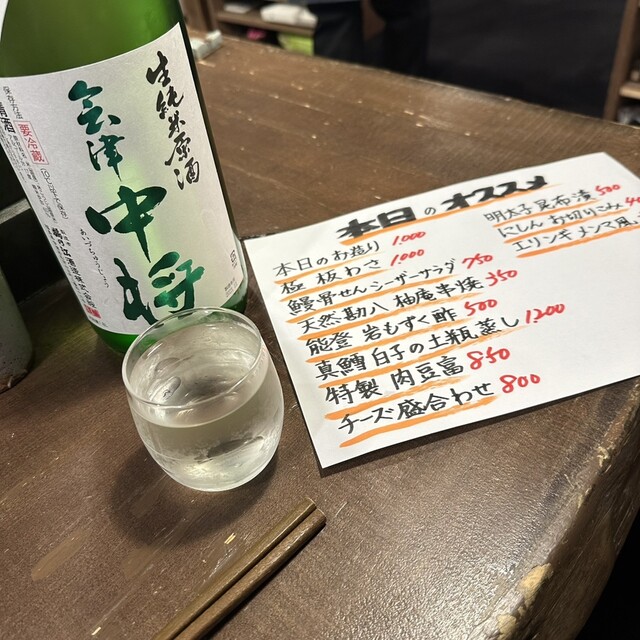 生純米原酒
会津中将
あいづちゅうじょう
要冷蔵
清酒
保存方法
鶴乃江酒造株式会社
本日のオススメ
本日のお造り 1000
極 板わさ 1000
鰻骨せんシーザーサラダ 750
天然勘八 柚庵串焼 350
能登 岩もずく酢 500
真鱈白子の土瓶蒸し 1200
特製 肉豆富 850
チーズ盛合わせ 800
明太子昆布漬 500
にしん お切りこみ
エリンギメンマ風